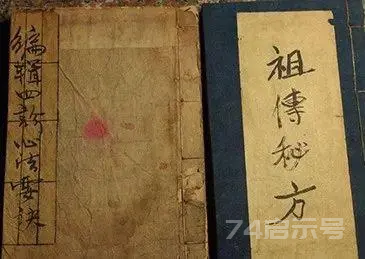 編輯四診心法要訣
祖傳秘方
74启示号